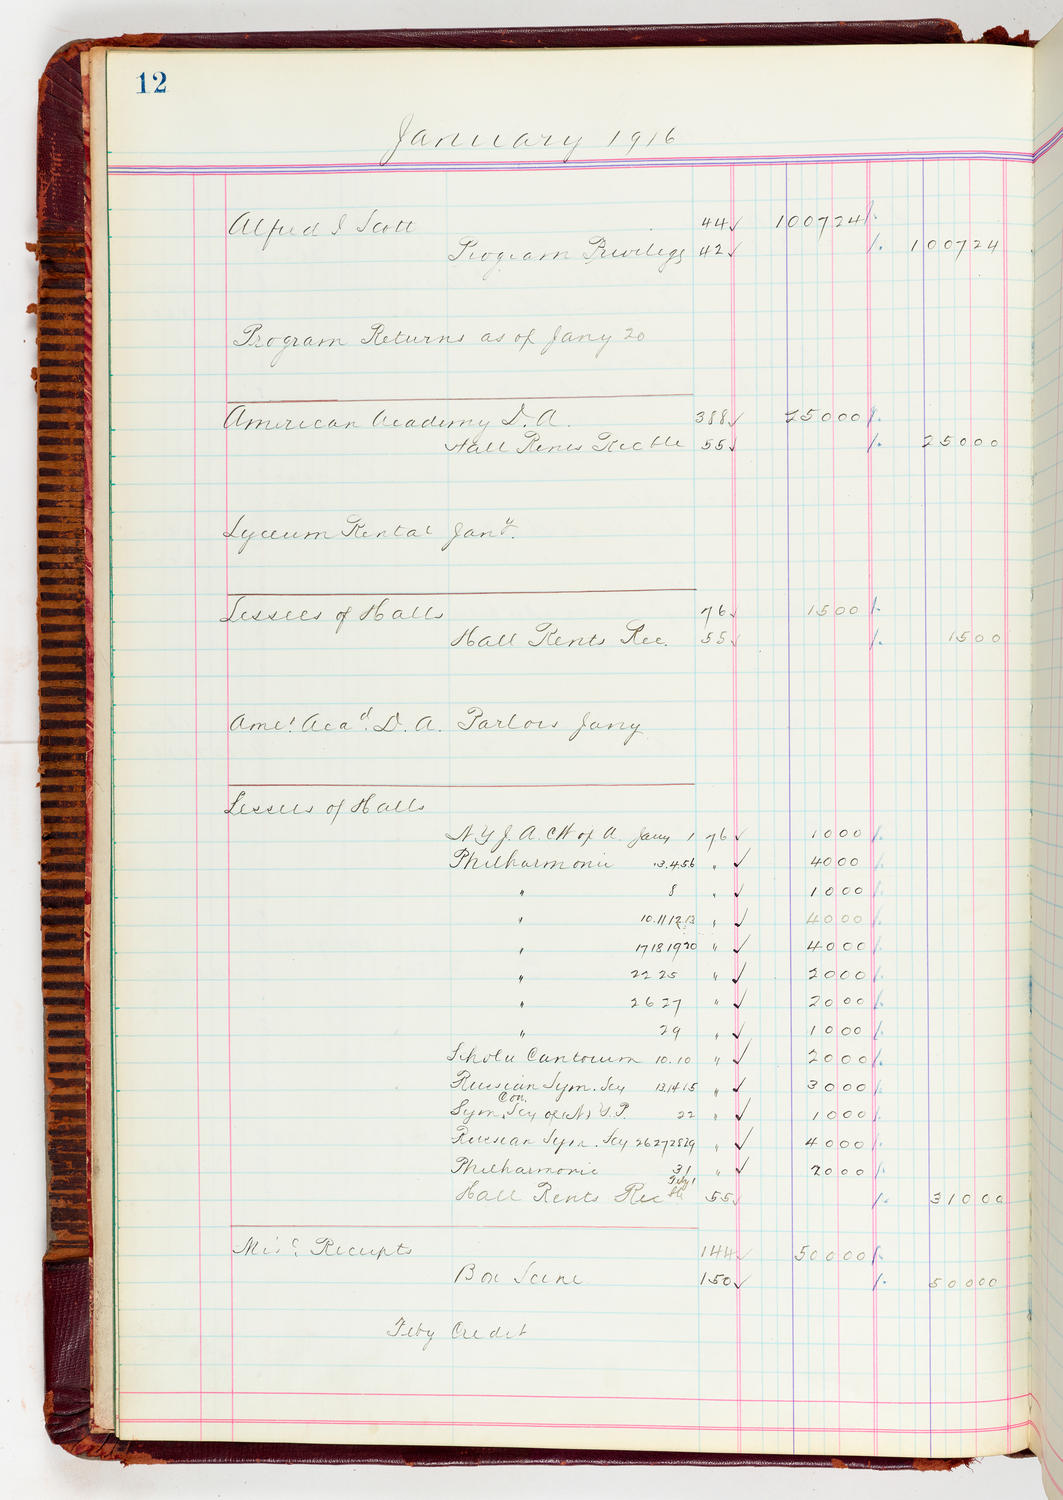 12
January 1916
Alfred I Scott 44 ✓ 1007 24 /.
Program Privilege 42 ✓ /. 1007 24
Program Returns as of Jany 20
American Academy D. A. 388 ✓ 250 00 /.
Hall Rents Recble 55 ✓ /. 250 00
Lyceum Rental Jany.
Lessees of Halls 76 ✓ 15 00 /.
Hall Rents Rec. 55 ✓ /. 15 00
Ame! Acad. D. A. Parlors Jany
Lessees of Halls
N Y J. A. CW of A. Jany 1 76 ✓ 10 00 /.
Philharmonic 3.4.5.6 " ✓ 40 00 /.
" 8 " ✓ 10 00 /.
" 10.11.12.13 " ✓ 40 00 /.
" 17 18 19 20 " ✓ 40 00 /.
" 22 25 " ✓ 20 00 /.
" 26 27 " ✓ 20 00 /.
" 29 " ✓ 10 00 /.
Schola Cantorum 10.10 " ✓ 20 00 /.
Russian Sym. Scy 13.14.15 " ✓ 30 00 /.
Con.
Sym. Scy of N.Y. 22 " ✓ 10 00 /.
Russian Sym. Scy 26 27 28 29 " ✓ 40 00 /.
Philharmonic 31 " ✓ 20 00 /.
Feby 1
Hall Rents Recble 55 ✓ /. 310 00
Misc. Receipts 144 ✓ 500 00 /.
Box Scene 150 ✓ /. 500 00
Feby Credit